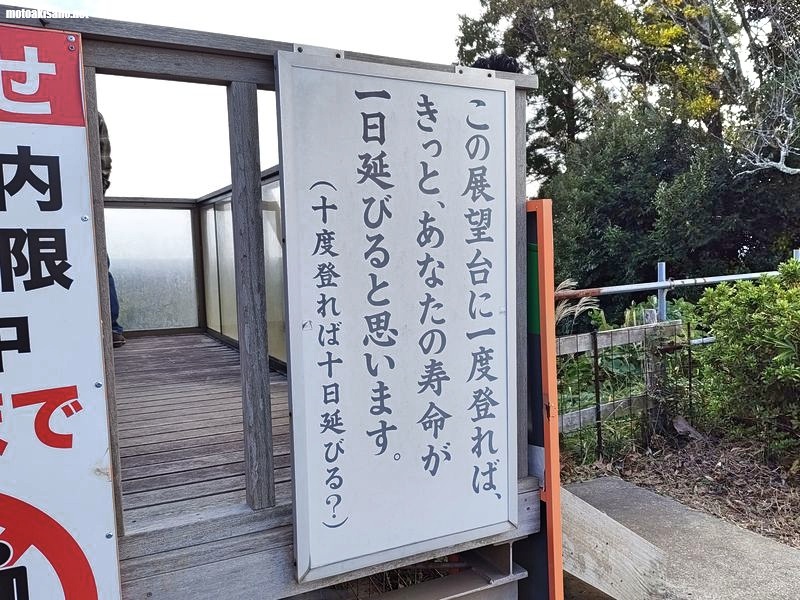 motoakisano.net
この展望台に一度登れば、
きっと、あなたの寿命が
一日延びると思います。
（十度登れば十日延びる？）
せ
内
限
中
で